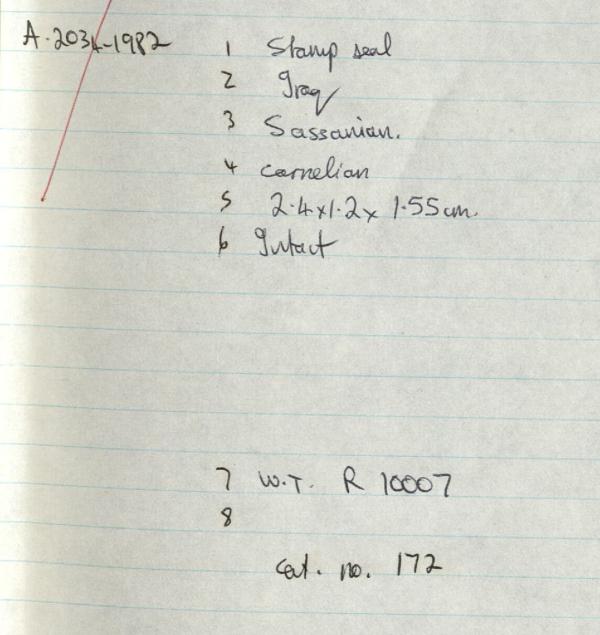 A.2034-1982 1 Stamp seal
2 Iraq
3 Sassanian.
4 Carnelian
5 2.4x1.2x 1.55cm.
6 Intact
7 W.T. R 10007
8
Cat. no. 172